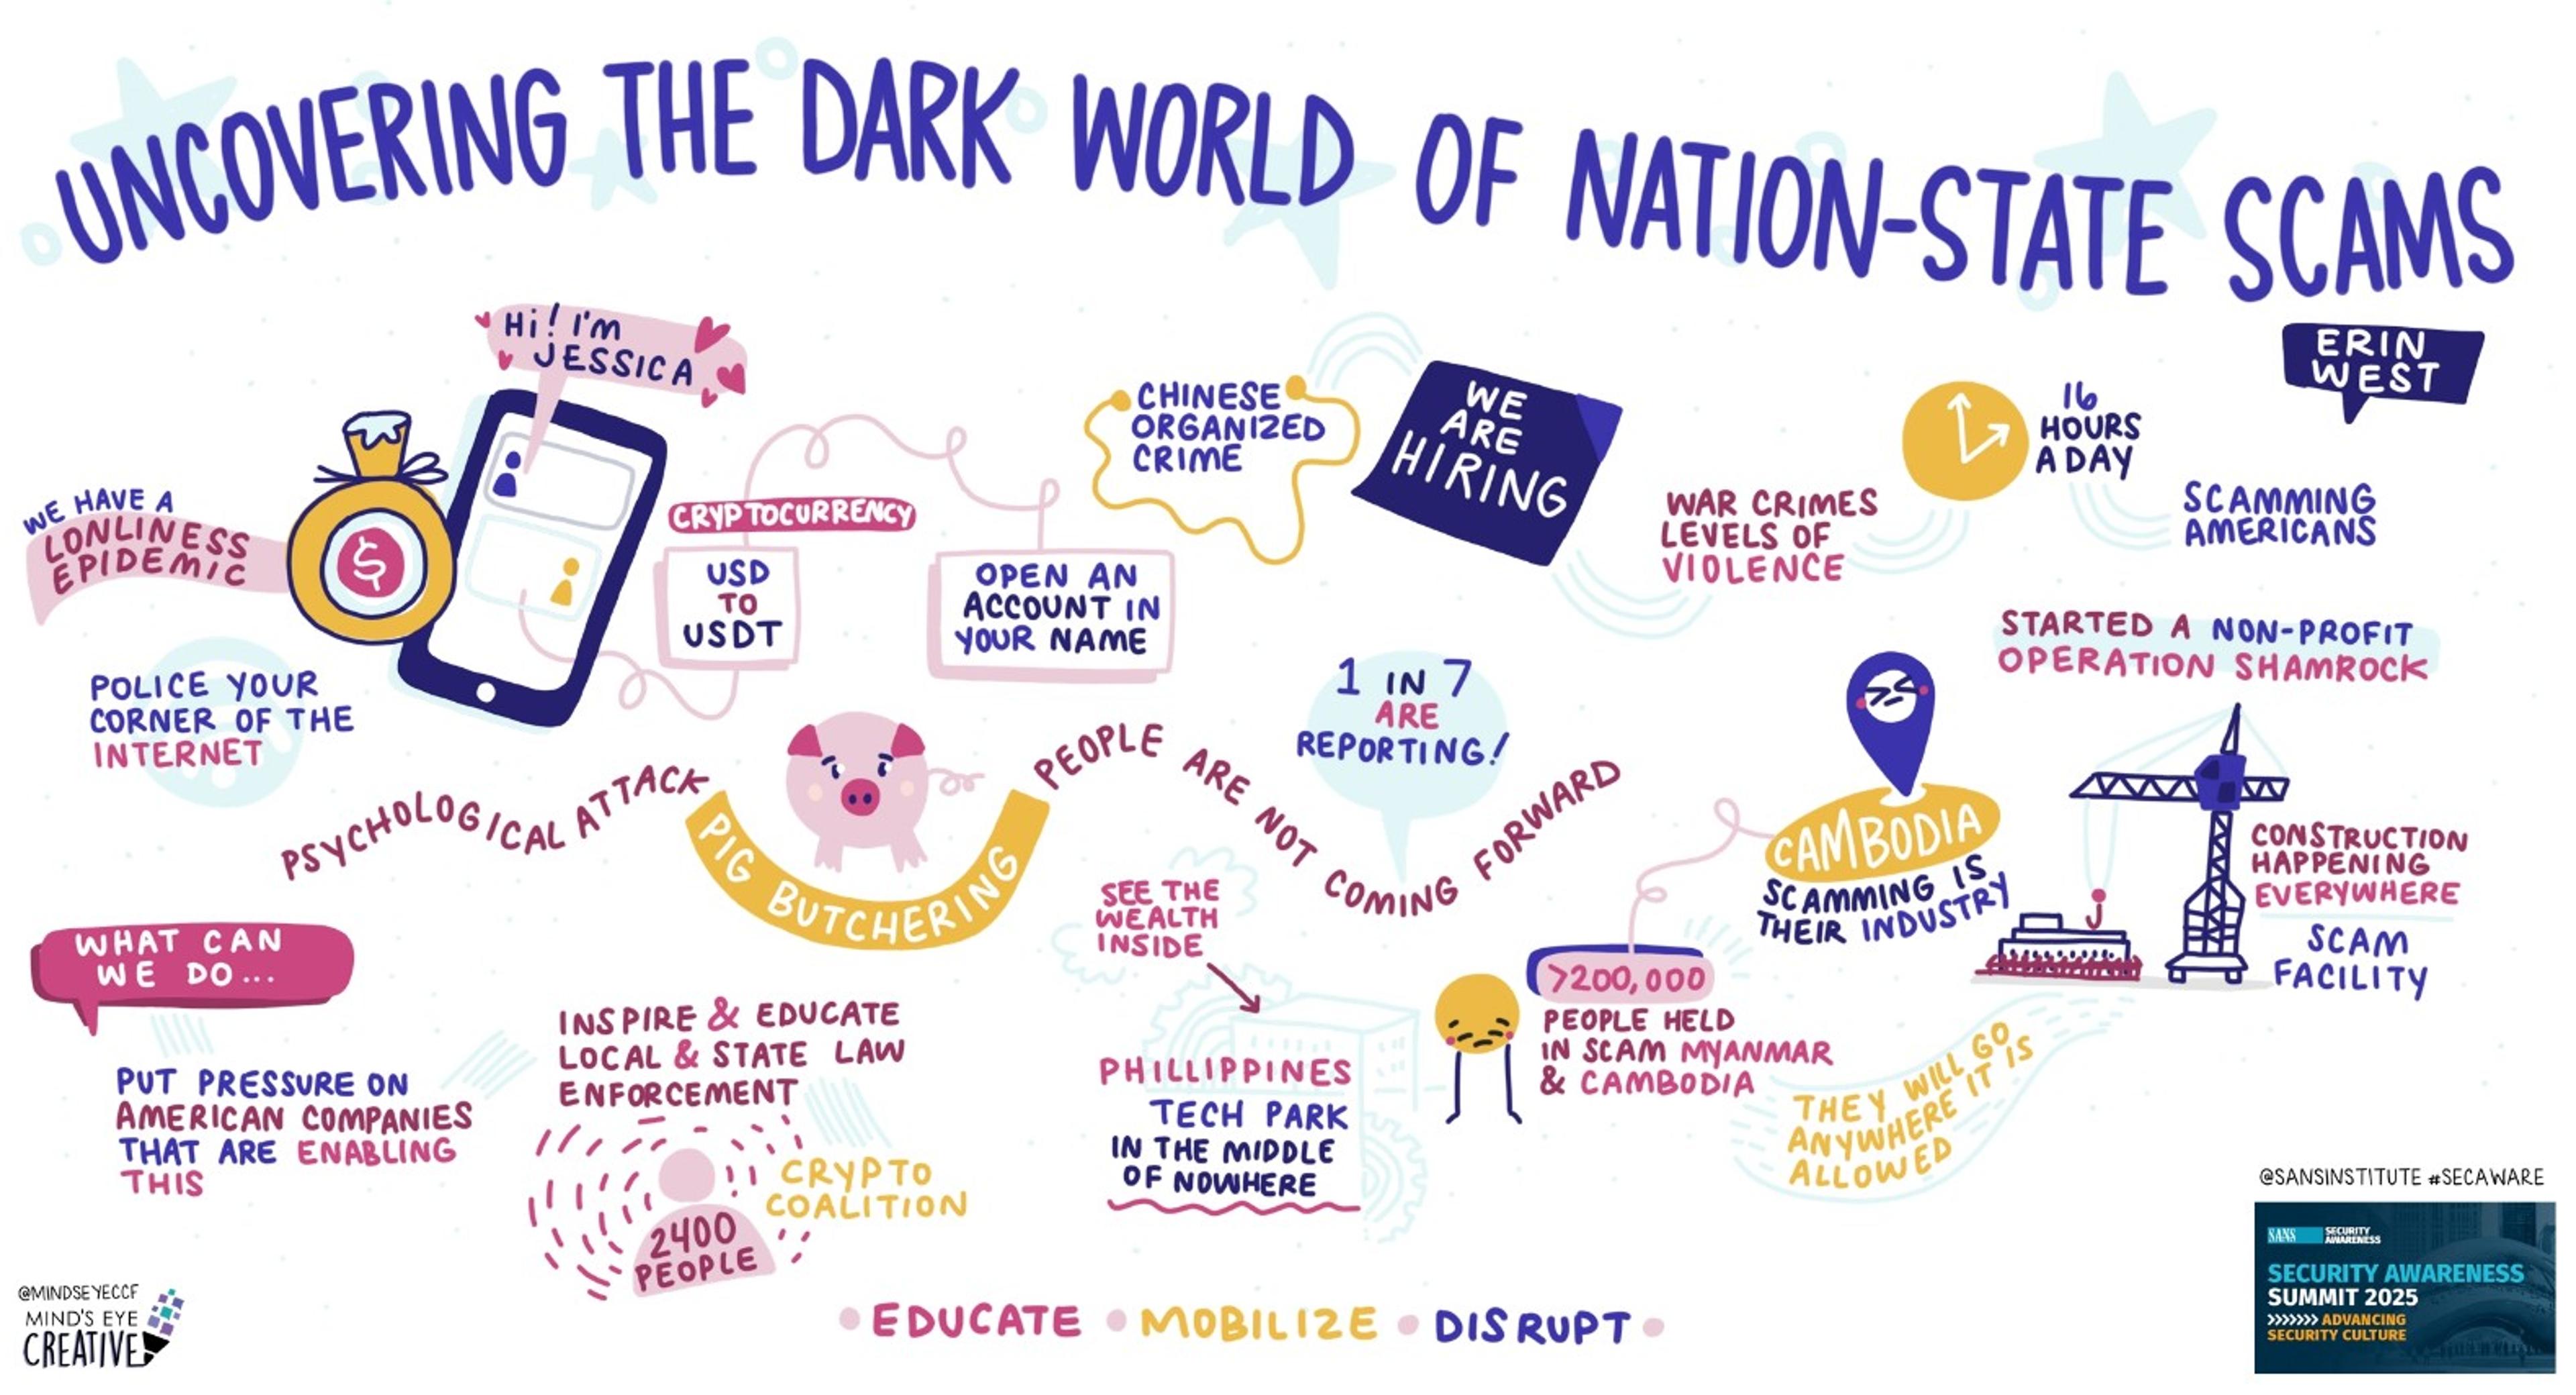 UNCOVERING THE DARK WORLD OF NATION-STATE SCAMS
ERIN
WEST
Hi! I'M
JESSICA
WE HAVE A
LONLINESS
EPIDEMIC
$
POLICE YOUR
CORNER OF THE
INTERNET
CRYPTOCURRENCY
USD
TO
USDT
OPEN AN
ACCOUNT IN
YOUR NAME
CHINESE
ORGANIZED
CRIME
WE
ARE
HIRING
WAR CRIMES
LEVELS OF
VIOLENCE
16
HOURS
A DAY
SCAMMING
AMERICANS
STARTED A NON-PROFIT
OPERATION SHAMROCK
PSYCHOLOGICAL ATTACK
PIG BUTCHERING
PEOPLE ARE NOT COMING FORWARD
1 IN 7
ARE
REPORTING!
CAMBODIA
SCAMMING IS
THEIR INDUSTRY
CONSTRUCTION
HAPPENING
EVERYWHERE
SCAM
FACILITY
WHAT CAN
WE DO...
PUT PRESSURE ON
AMERICAN COMPANIES
THAT ARE ENABLING
THIS
INSPIRE & EDUCATE
LOCAL & STATE LAW
ENFORCEMENT
CRYPTO
COALITION
2400
PEOPLE
SEE THE
WEALTH
INSIDE
PHILLIPPINES
TECH PARK
IN THE MIDDLE
OF NOWHERE
>200,000
PEOPLE HELD
IN SCAM MYANMAR
& CAMBODIA
THEY WILL GO
ANYWHERE IT IS
ALLOWED
EDUCATE • MOBILIZE • DISRUPT
@MINDSEYECCF
MIND'S EYE
CREATIVE
@SANSINSTITUTE #SECAWARE
SANS SECURITY
AWARENESS
SECURITY AWARENESS
SUMMIT 2025
>>>>>>> ADVANCING
SECURITY CULTURE